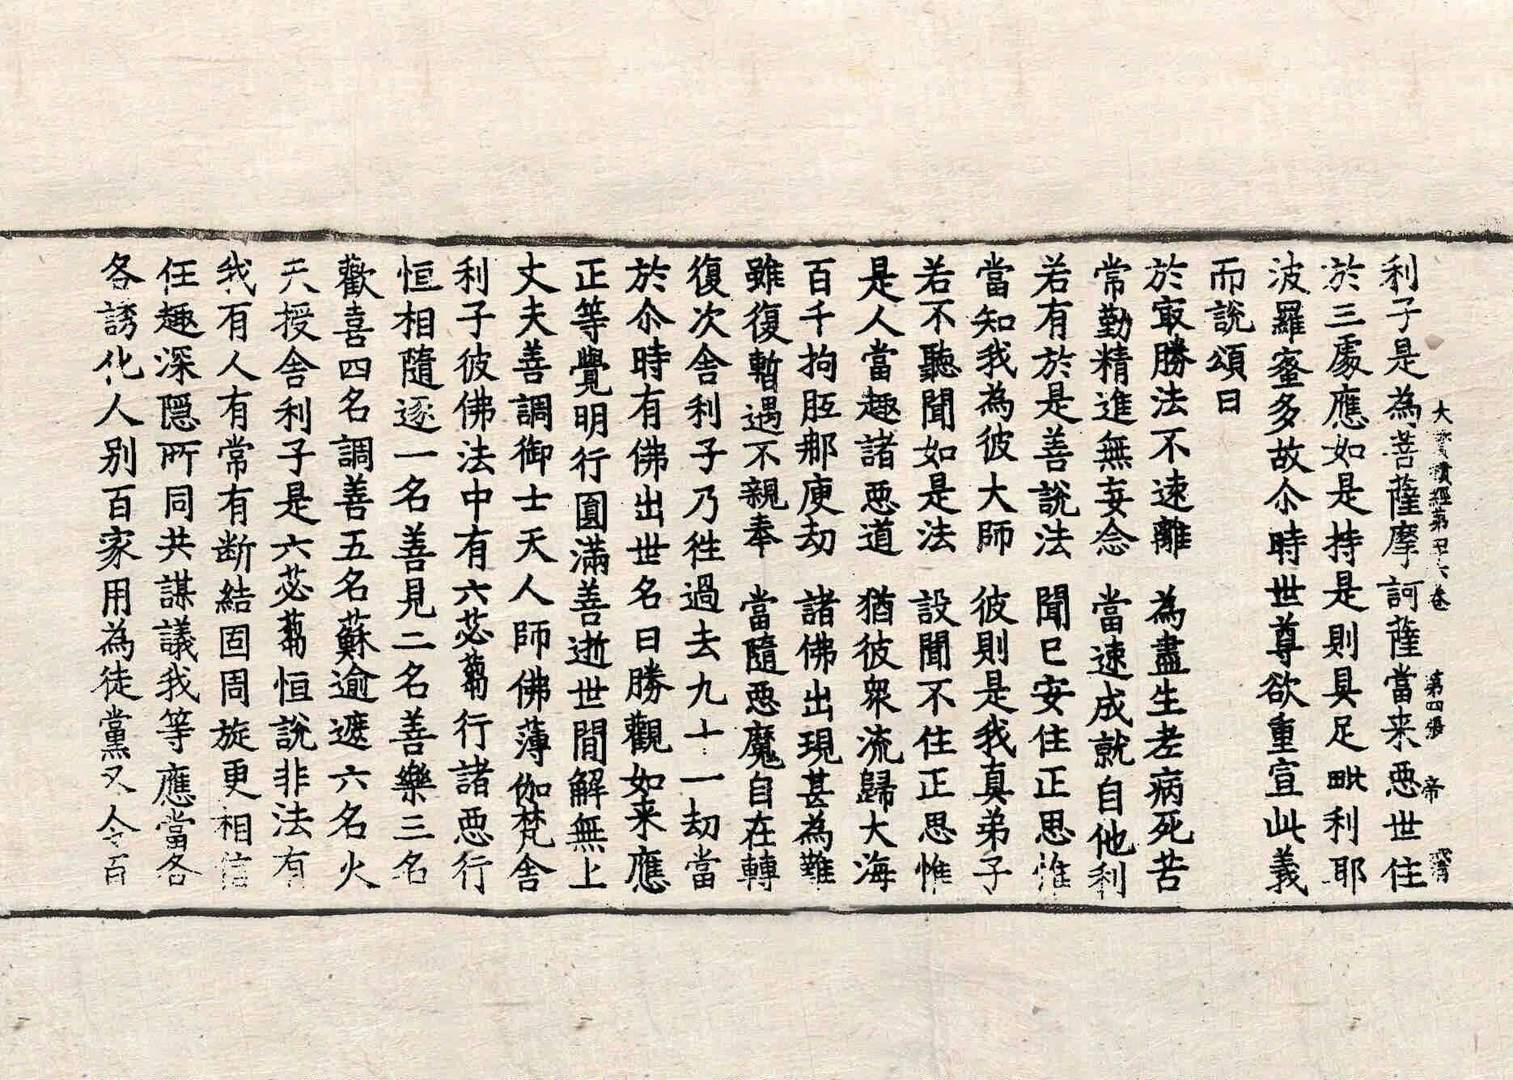 大寶積經第四十六卷 第四張 帝
利子是為菩薩摩訶薩當来惡世住
於三處應如是持是則具足毗利耶
波羅蜜多故尒時世尊欲重宣此義
而說頌曰
於㝡勝法不速離 為盡生老病死苦
常勤精進無妄念 當速成就自他利
若有於是善說法 聞已安住正思惟
當知我為彼大師 彼則是我真弟子
若不聽聞如是法 設聞不住正思惟
是人當趣諸惡道 猶彼衆流歸大海
百千拘胝那庾劫 諸佛出現甚為難
雖復暫遇不親奉 當隨惡魔自在轉
復次舍利子乃往過去九十一劫當
於尒時有佛出世名曰勝觀如来應
正等覺明行圓滿善逝世間解無上
丈夫善調御士天人師佛薄伽梵舍
利子彼佛法中有六苾蒭行諸惡行
恒相隨逐一名善見二名善樂三名
歡喜四名調善五名蘇逾遮六名火
天授舍利子是六苾蒭恒說非法有
我有人有常有断結固周旋更相信
任趣深隱所同共謀議我等應當各
各誘化人別百家用為徒黨又令百